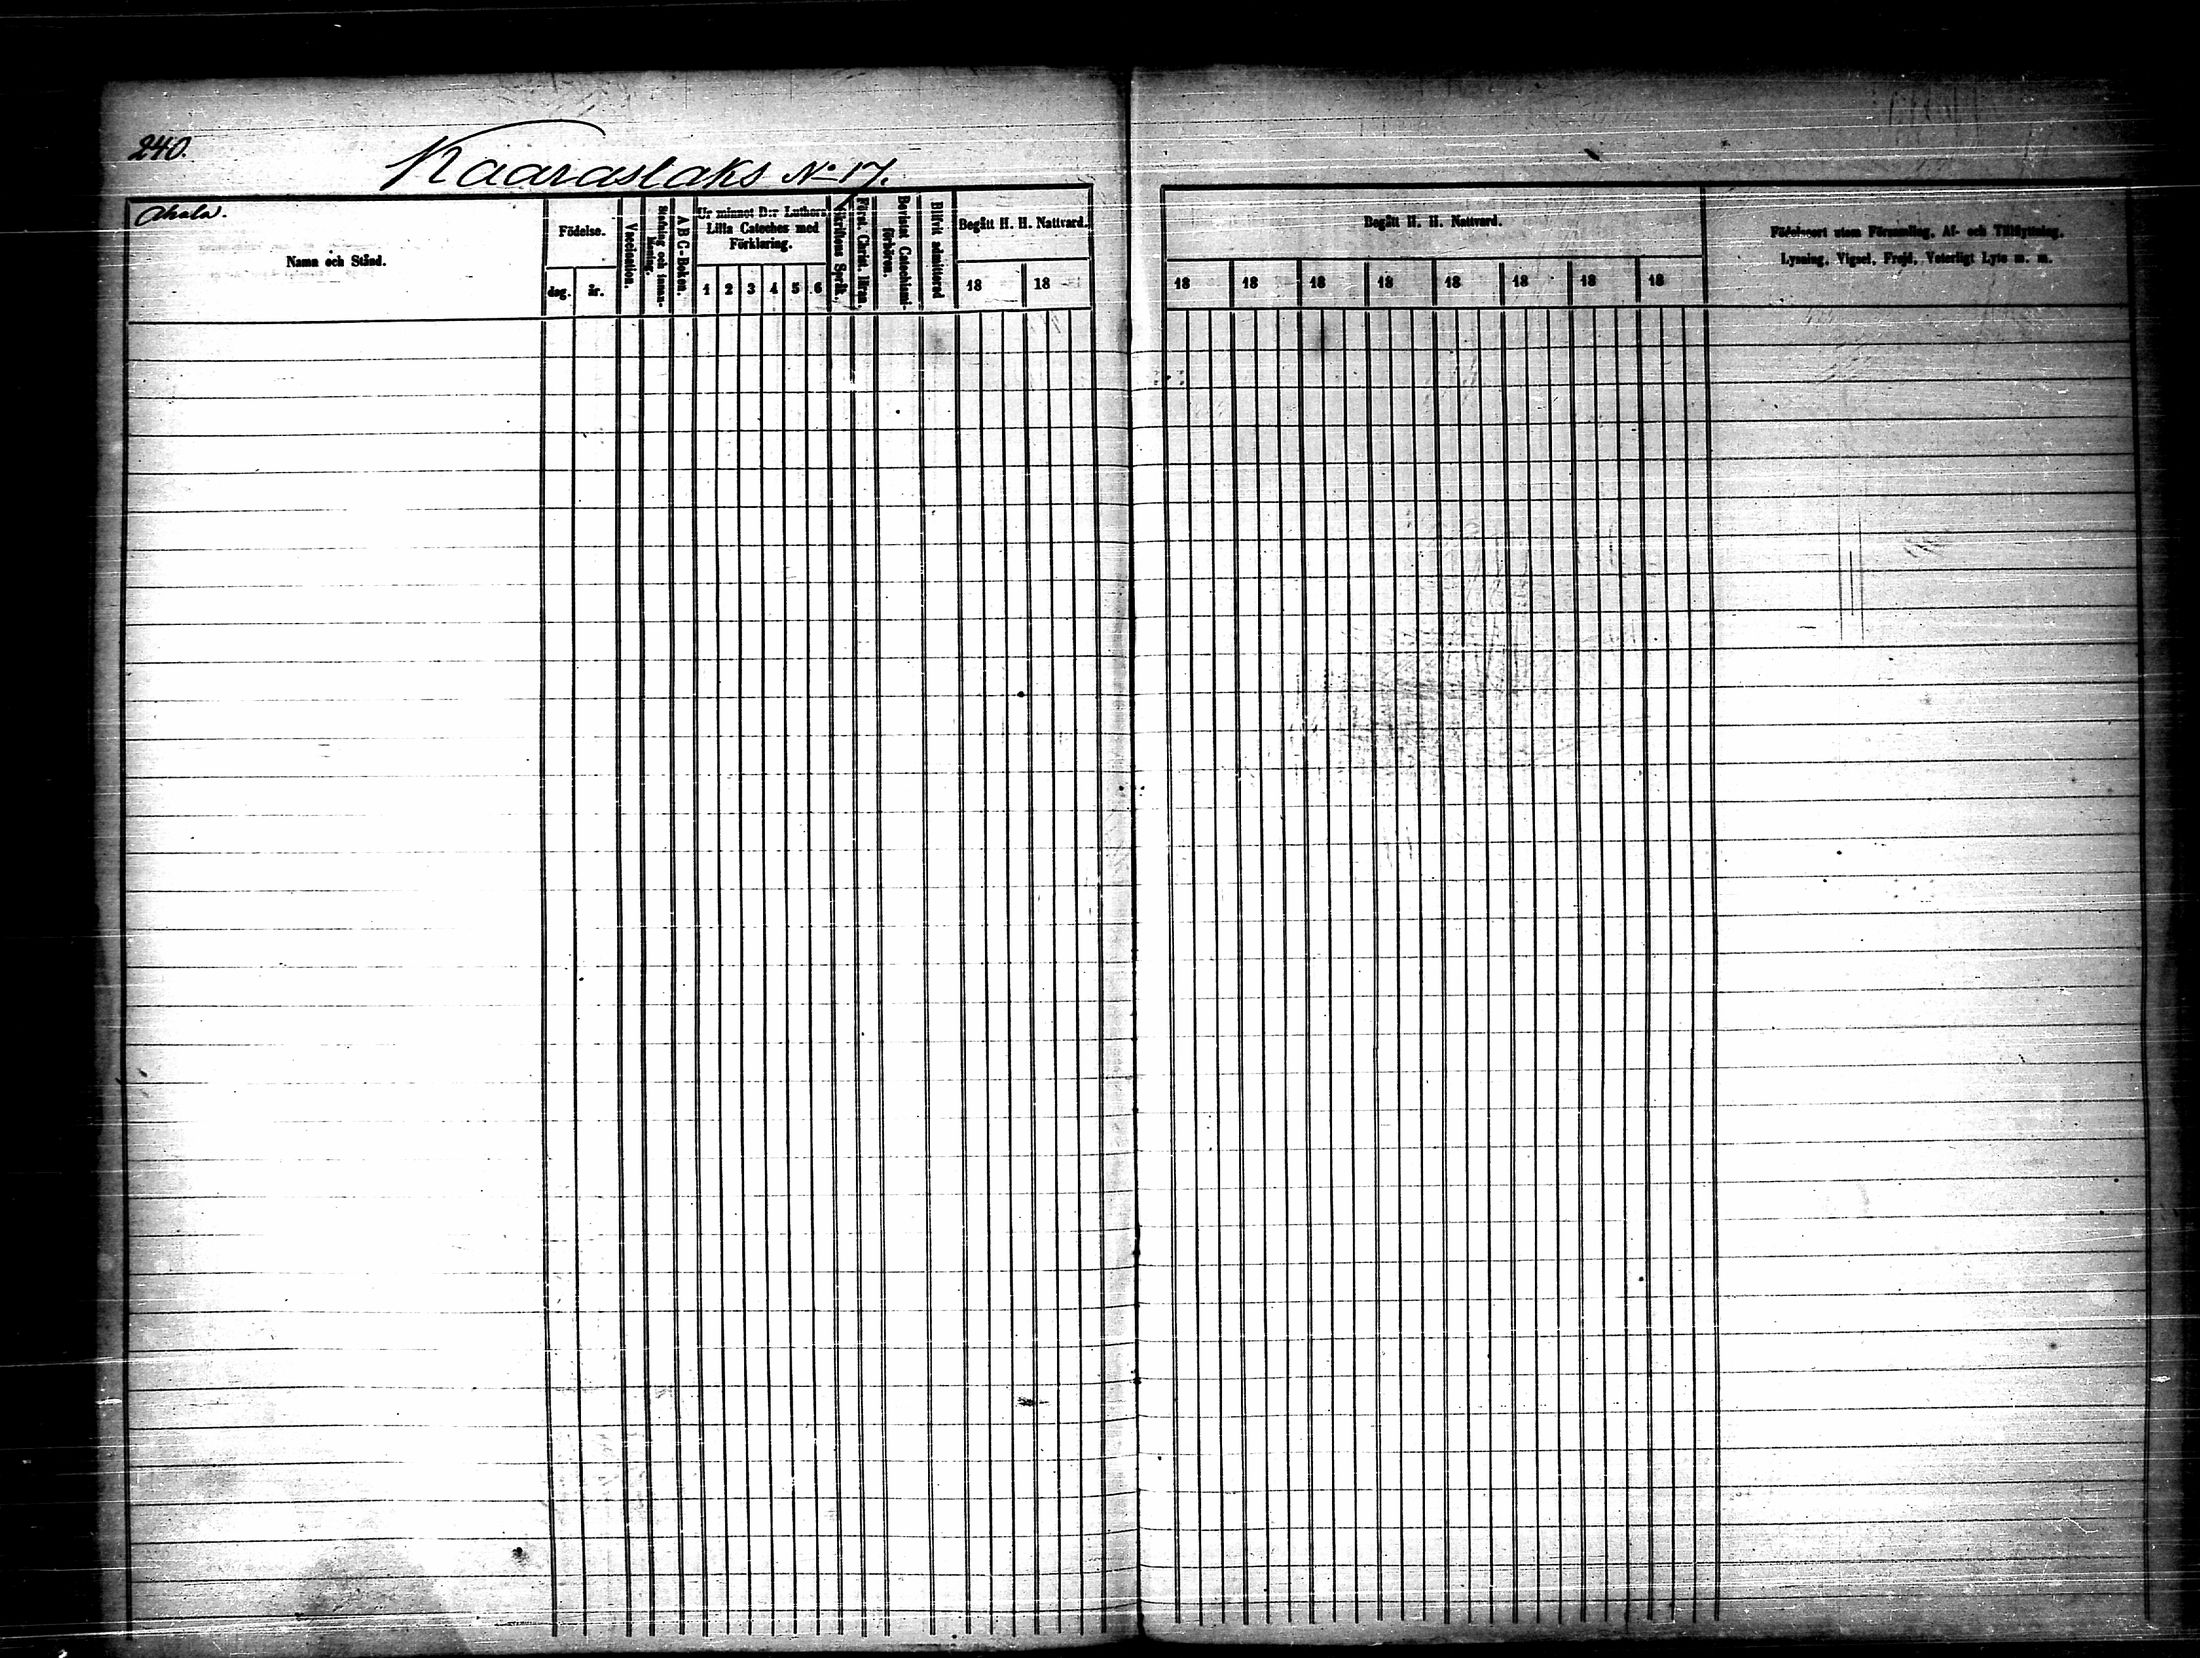 240.
Kaaraslaks No 17.
Ahala.
Namn och Stånd.
Födelse.
dag. år.
Vaccination.
Stafning och innan-
läsning.
A B C-Boken.
Ur minnet D:r Luthers
Lilla Cateches med
Förklaring.
1 2 3 4 5 6
Skriftens Språk.
Först. Christ. läran.
Bevistat Catechismi-
förhören.
Blifvit admitterad
Begått H. H. Nattvard.
18 18
Begått H. H. Nattvard.
18 18 18 18 18 18 18 18
Födelseort utom Församling, Af- och Tillflyttning,
Lysning, Vigsel, Frejd, Veterligt Lyte m. m.